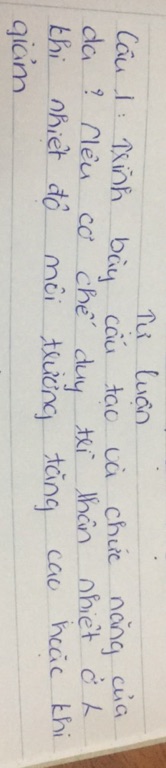 Tự luận
Câu 1: Trình bày cấu tạo và chức năng của
da? Nêu cơ chế duy trì thân nhiệt ở
khi nhiệt độ môi trường tăng cao hoặc khi
giảm